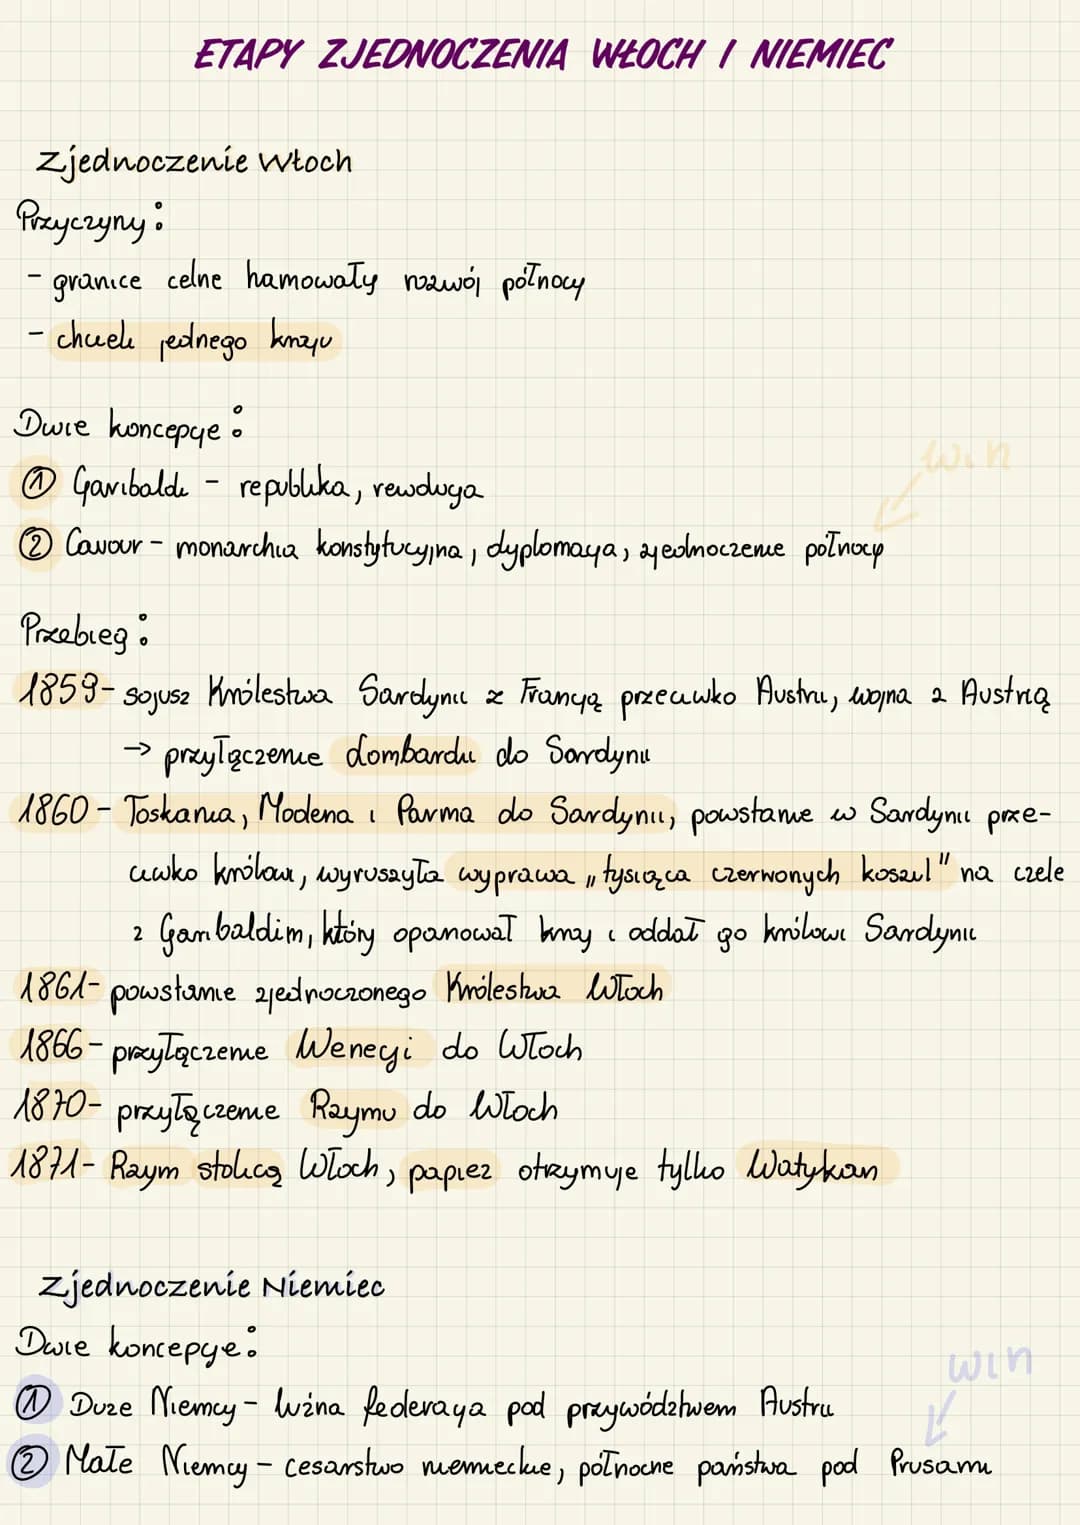 ETAPY ZJEDNOCZENIA WŁOCH I NIEMIEC
Zjednoczenie Włoch
Przyczyny:
- granice celne hamowały rozwój północy
- chcieli jednego kraju
Dwie koncepcje:
① Garibaldi - republika, rewolucja
win
② Cavour - monarchia konstytucyjna, dyplomacja, zjednoczenie północy
Przebieg:
1859- sojusz Królestwa Sardynii z Francją przeciwko Austrii, wojna z Austrią
→ przyłączenie Lombardii do Sardynii
1860 - Toskania, Modena i Parma do Sardynii, powstanie w Sardynii prze-
ciwko królowi, wyruszyła wyprawa „tysiąca czerwonych koszul" na czele
z Garibaldim, który opanował kraj i oddał go królowi Sardynii
1861- powstanie zjednoczonego Królestwa Włoch
1866 - przyłączenie Wenecji do Włoch
1870- przyłączenie Rzymu do Włoch
1871- Rzym stolicą Włoch, papież otrzymuje tylko Watykan
Zjednoczenie Niemiec
Dwie koncepcje:
win
① Duże Niemcy - luźna federacja pod przywództwem Austrii
② Małe Niemcy - cesarstwo niemieckie, północne państwa pod Prusami